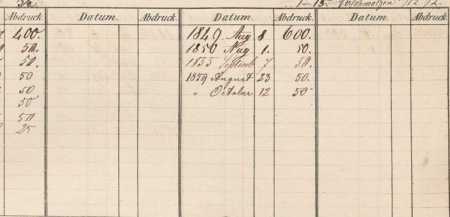 Abdruck. Datum. Abdruck. Datum. Abdruck. Datum. Abdruck.
400. 1849 Aug 8 600.
50. 1850 Aug 1. 50.
50. 1855 7 50.
50 1859 August 23 50.
50 " October 12 50
50
50
25